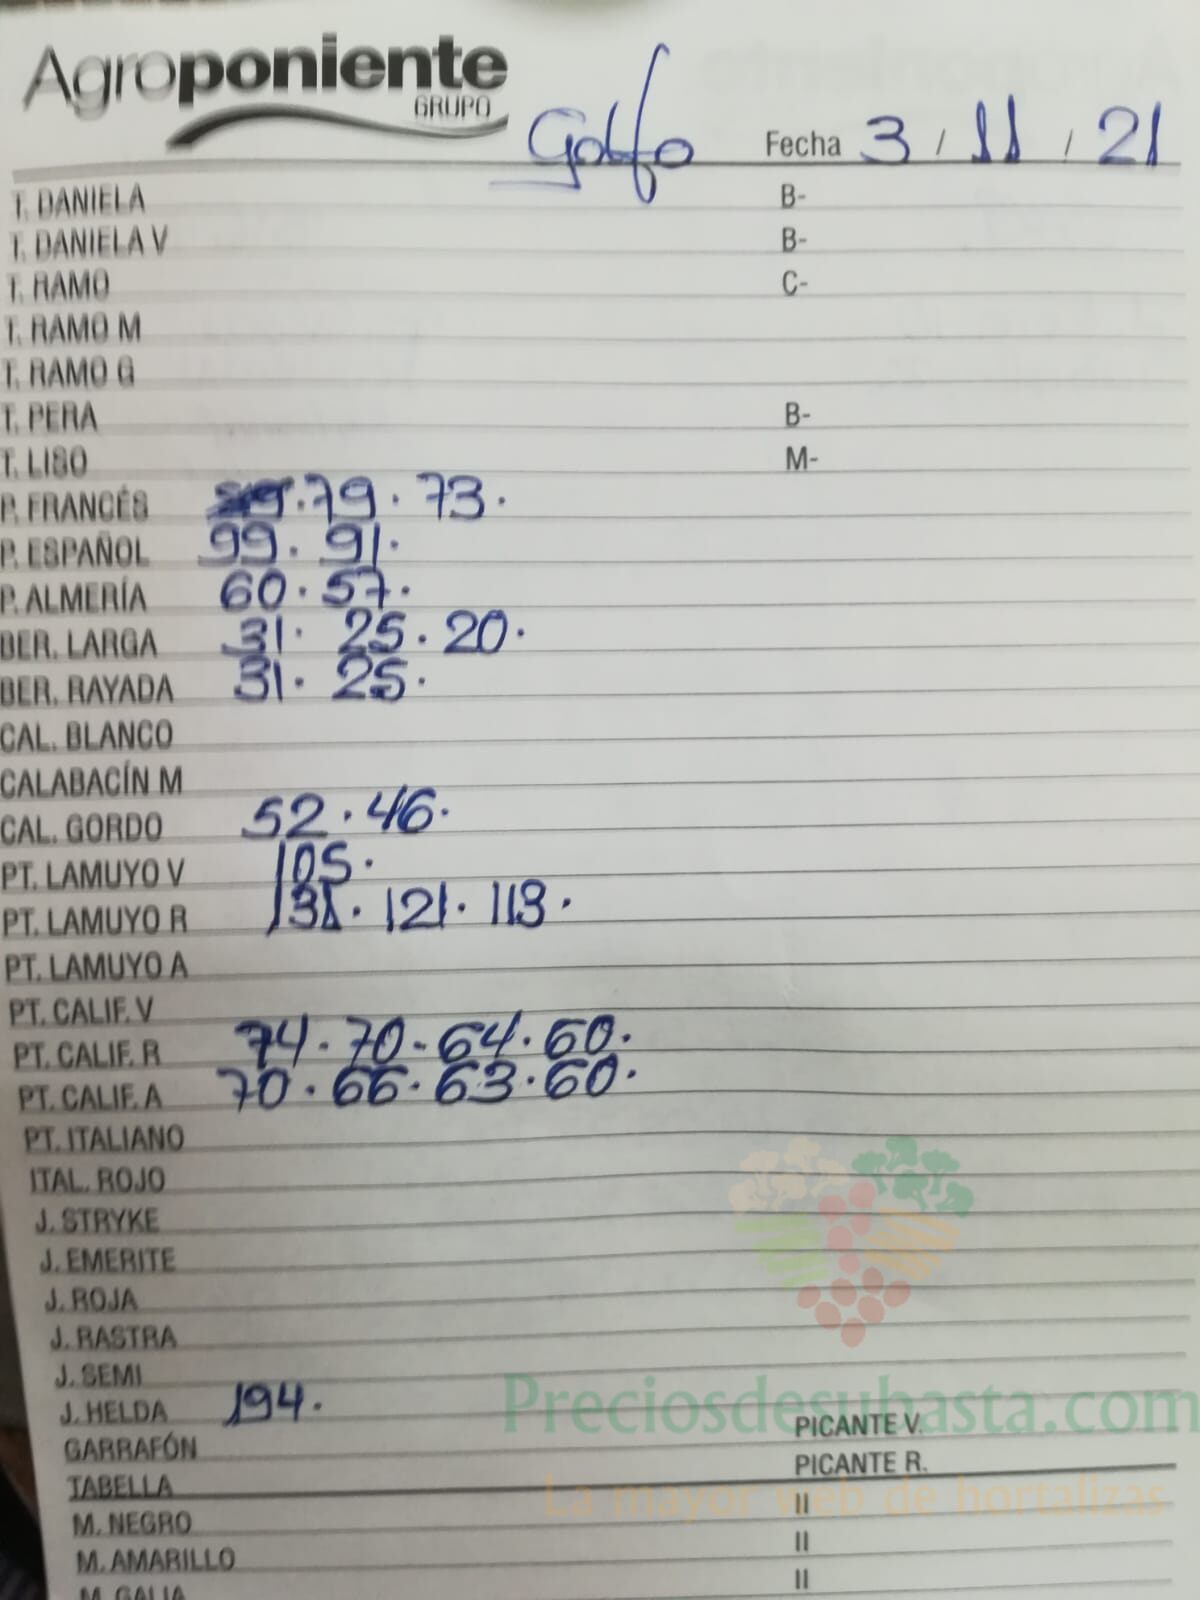 Agroponiente
GRUPO
Golfo Fecha 3 / 11 / 21
T. DANIELA B-
T. DANIELA V B-
T. RAMO C-
T. RAMO M
T. RAMO G
T. PERA B-
T. LISO M-
P. FRANCÉS 79. 73.
P. ESPAÑOL 99. 91.
P. ALMERÍA 60. 57.
BER. LARGA 31. 25. 20.
BER. RAYADA 31. 25.
CAL. BLANCO
CALABACÍN M
CAL. GORDO 52. 46.
PT. LAMUYO V 105.
PT. LAMUYO R 121. 113.
PT. LAMUYO A
PT. CALIF. V
PT. CALIF. R 74. 70- 64. 60.
PT. CALIF. A 70. 66. 63. 60.
PT. ITALIANO
ITAL. ROJO
J. STRYKE
J. EMERITE
J. ROJA
J. RASTRA
J. SEMI
J. HELDA 194.
Preciosdesubasta.com
GARRAFÓN PICANTE V.
TABELLA PICANTE R.
La mayor web de hortalizas
M. NEGRO II
M. AMARILLO II
M. GALIA II